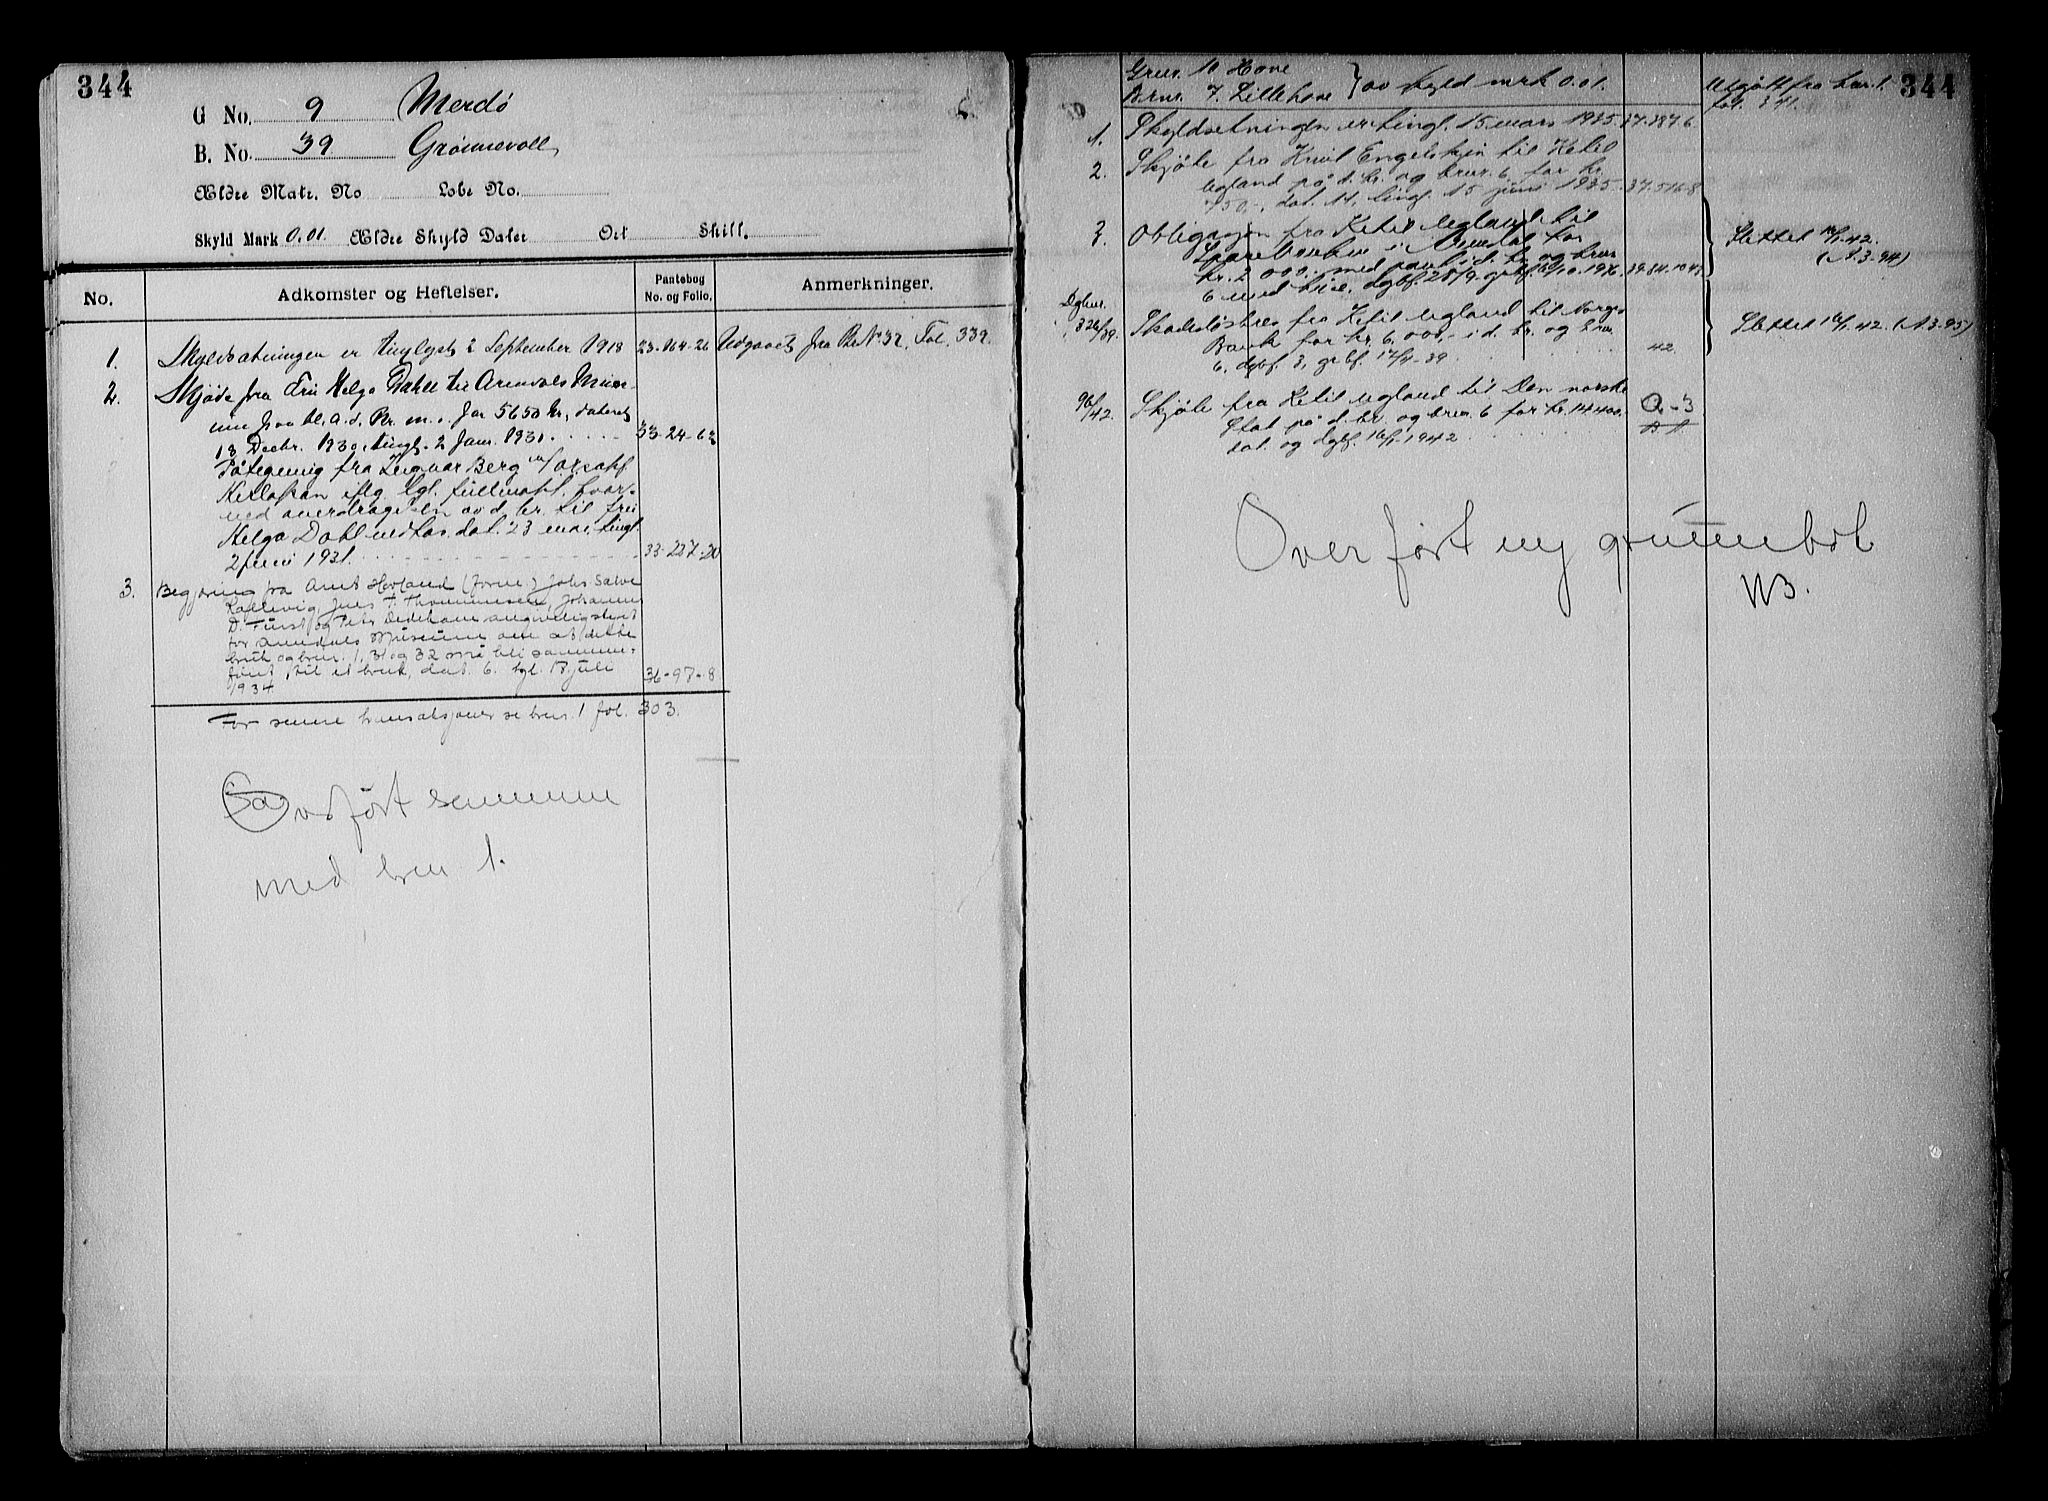 344
G No. 9 Merdö
B. No. 39 Grönnevoll
Ældre Matr. No Løbe No.
Skyld Mark 0.01. Ældre Skyld Daler Ort Skill.
No. Adkomster og Heftelser. Pantebog No. og Folio. Anmerkninger.
1. Skyldsætningen er tinglyst 2 September 1918 23-164-26 Udgaaet fra Br. No 32, Fol. 339.
2. Skjøde fra Fru Helga Dahll til Arendals Muse-
um paa bl. a. d. Br. m. for 5650 kr, dateret
13 Decbr. 1930, tingl. 2 Janr. 1931. 33-24-63
Påtegning fra Ingvar Berg
iflg. tgl. fullmakt, hvor-
ved overdragelsen av d. br. til fru
Helga Dahl vedtas, dat. 23 mai, tingl.
2 juni 1931. 33-227-20
3. Begjæring fra Arnt Hovland (form.) Johs. Salve
Kallevig, Jens F. Thommesen, Johannes
D. Fürst og Peter Dedekam angivelig styret
for Arendals Museum om at dette
bruk og brnr. 1, 31 og 32 må bli sammen-
føiet til et bruk, dat. 6. tgl. 13 juli
1934 36-97-8
For senere transaksjoner se brnr. 1 fol. 303.
Sa. ovført sammen
med brnr 1.
344
Grnr. 10 Hove
Brnr. 7. Lillehove } av skyld mrk 0.01. Utgått fra bnr. 1. fol. 341.
1. Skyldsetningen er tingl. 15 mars 1935. 37.187.6
2. Skjöte fra Knut Engelskjøn til Ketil
Ugland på d. br. og brnr. 6 for kr.
750,-, dat. 14, tingl. 15 juni 1935. 37.516.8
3. Obligasjon fra Ketil Ugland til
Sparebanken i Arendal for
kr. 2 000,- med pant i d. br. og brnr.
6 med dgbf. 28/9 39.84.1048 Slettet 16/1-42. (A.3-94)
Dgbnr. 326/39. Skadesløsbrev fra Ketil Ugland til Norges
Bank for kr. 6.000,- i d. br. og brnr.
6, dgbf. 3, grbf. 12/4-39. 42. Slettet 16/1-42. (A 3-95)
96/42 Skjöte fra Ketil Ugland til Den norske
Stat på d. br. og brnr. 6 for kr. 14400.
dat. og dgbf. 16/1-1942. A-3
Overført ny grunnbok